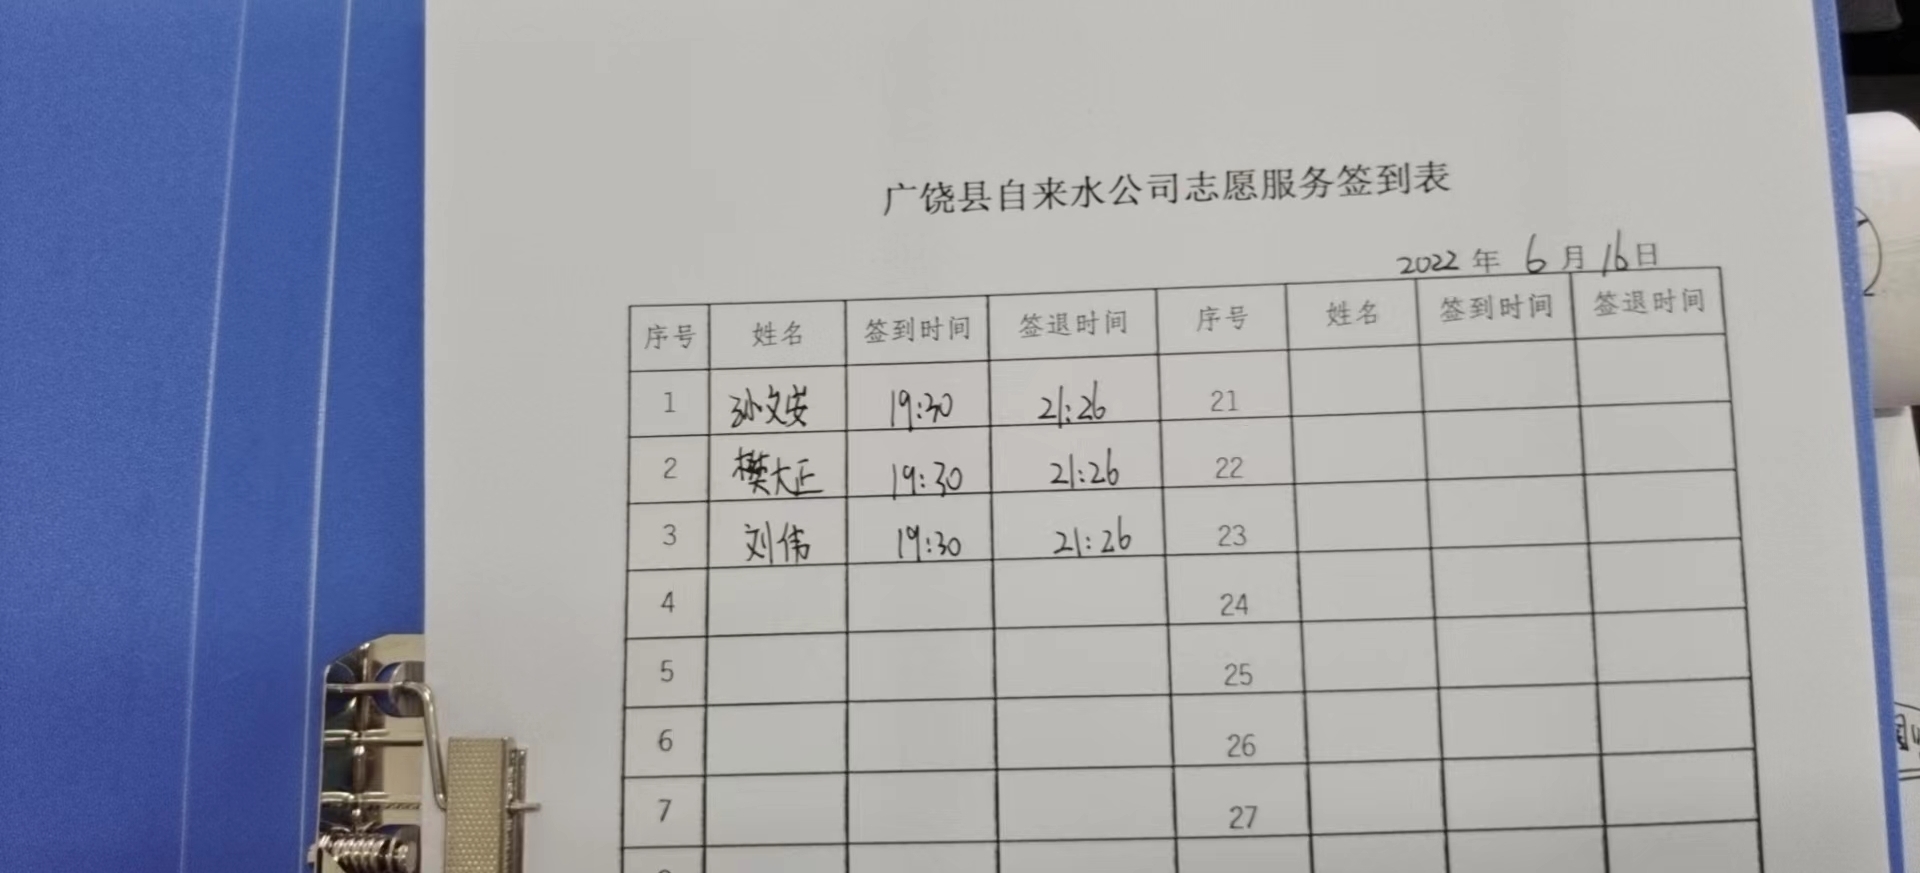 广饶县自来水公司志愿服务签到表
2022年 6月16日
序号 姓名 签到时间 签退时间 序号 姓名 签到时间 签退时间
1 孙文安 19:30 21:26 21
2 樊大正 19:30 21:26 22
3 刘伟 19:30 21:26 23
4 24
5 25
6 26
7 27